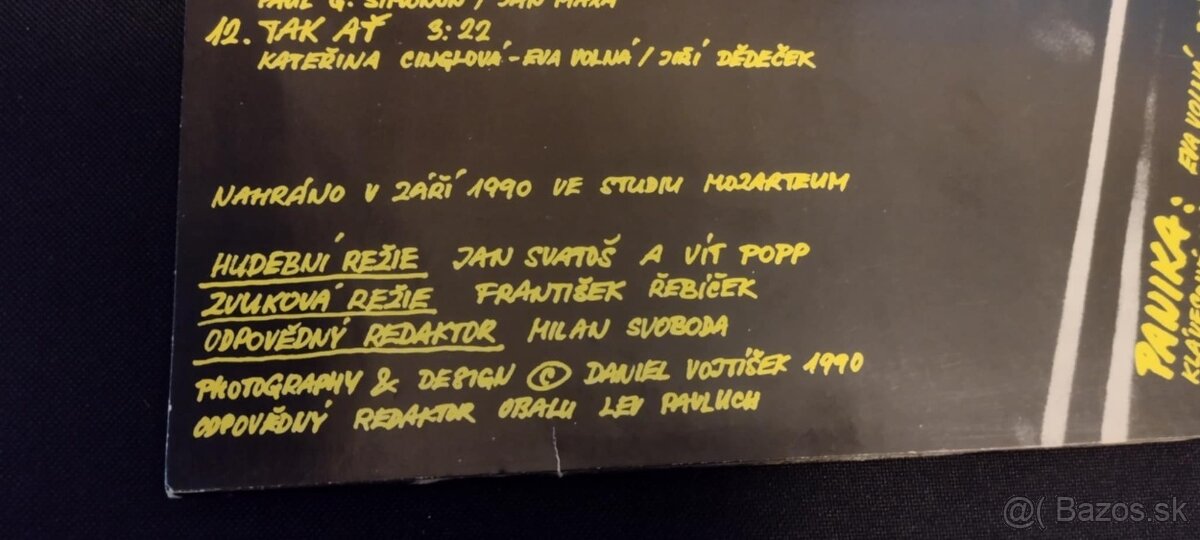 PAUL G. SIMONON / JAN MAXA
12. TAK AŤ 3:22
KATEŘINA CINGLOVÁ - EVA VOLNÁ / JIŘÍ DĚDEČEK
NAHRÁNO V ZÁŘÍ 1990 VE STUDIU MOZARTEUM
HUDEBNÍ REŽIE JAN SVATOŠ A VÍT POPP
ZVUKOVÁ REŽIE FRANTIŠEK ŘEBÍČEK
ODPOVĚDNÝ REDAKTOR MILAN SVOBODA
PHOTOGRAPHY & DESIGN © DANIEL VOJTÍŠEK 1990
ODPOVĚDNÝ REDAKTOR OBALU LEV PAVLUCH
PANIKA: EVA VOLNÁ
@( Bazos.sk